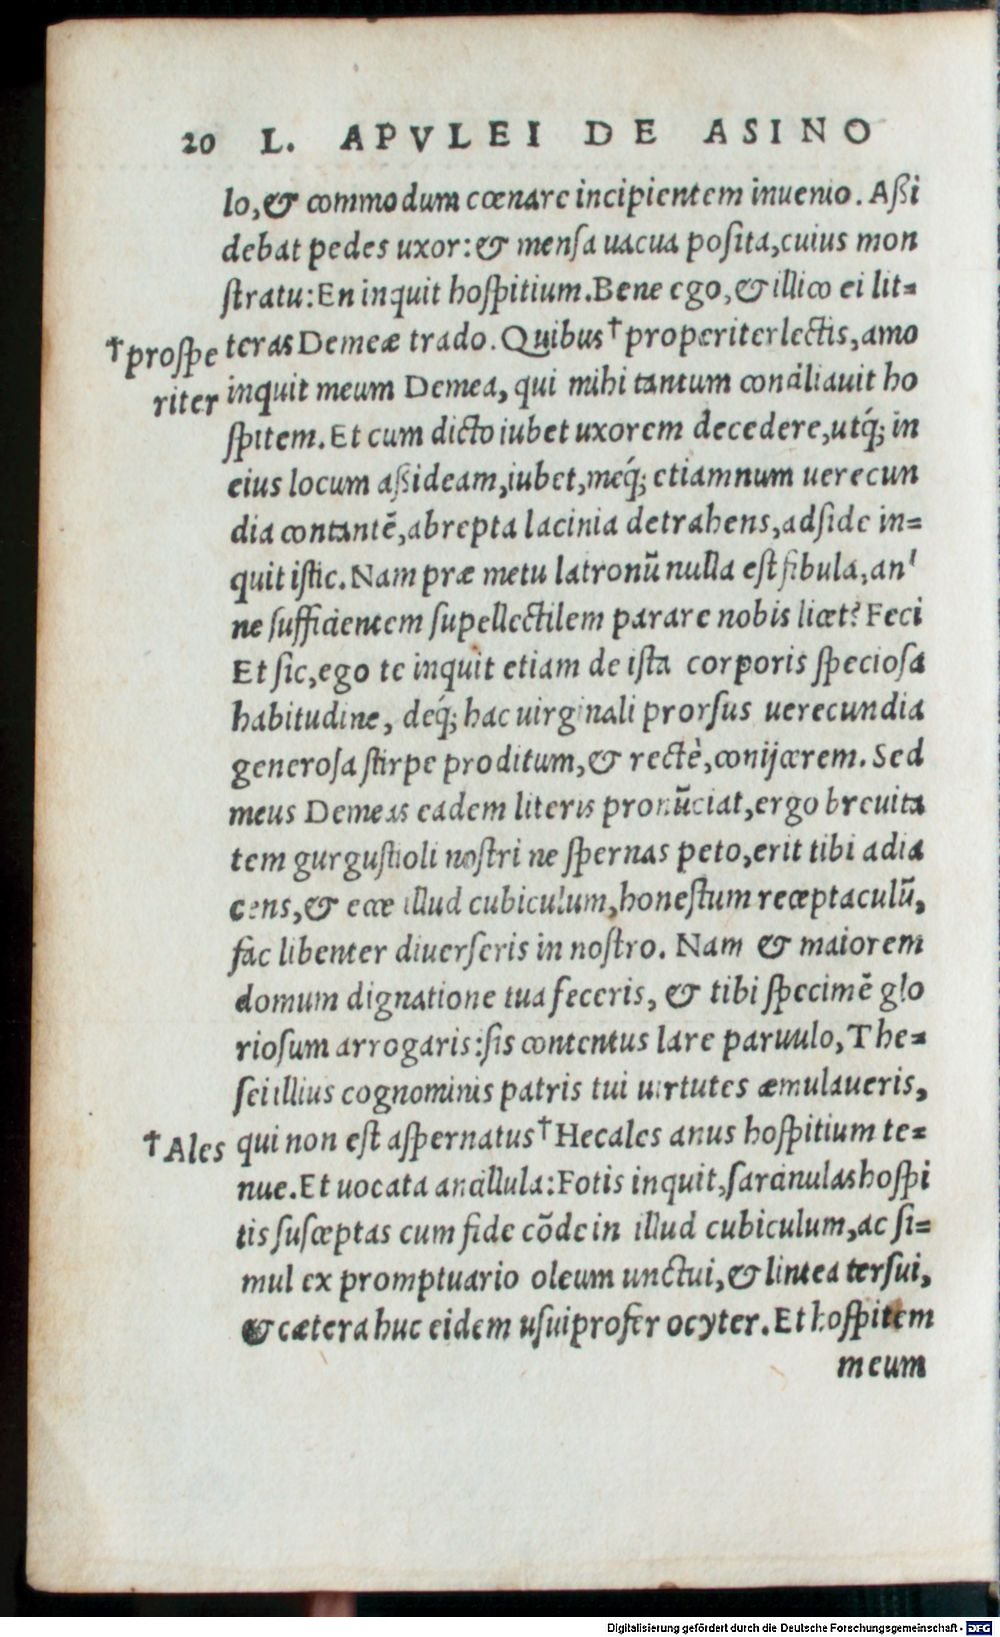 20 L. APVLEI DE ASINO
lo,& commodum cœnare incipientem inuenio. Aßi
debat pedes uxor:& mensa uacua posita,cuius mon
stratu:En inquit hospitium.Bene ego,& illico ei lit=
teras Demeæ trado. Quibus†properiter lectis,amo
†prospe
riter
inquit meum Demea, qui mihi tantum conciliauit ho
spitem.Et cum dicto iubet uxorem decedere,utq́; in
eius locum aßideam,iubet,meq́; etiamnum uerecun
dia contantē,abrepta lacinia detrahens,adside in=
quit istic.Nam præ metu latronū nulla est sibula,an'
ne sufficientem supellectilem parare nobis licet? Feci
Et sic,ego te inquit etiam de ista corporis speciosa
habitudine, deq́; hac uirginali prorsus uerecundia
generosa stirpe proditum,& rectè,conijcerem. Sed
meus Demeas eadem literis pronūciat,ergo breuita
tem gurgustioli nostri ne spernas peto,erit tibi adia
cens,& ecce illud cubiculum,honestum receptaculū,
fac libenter diuerseris in nostro. Nam & maiorem
domum dignatione tua feceris, & tibi specimē glo
riosum arrogaris:sis contentus lare paruulo,The=
sei illius cognominis patris tui uirtutes æmulaueris,
†Ales
qui non est aspernatus†Hecales anus hospitium te=
nue.Et uocata ancillula:Fotis inquit,sarcinulas hospi
tis susceptas cum fide cōde in illud cubiculum,ac si=
mul ex promptuario oleum unctui,& lintea tersui,
& cætera huc eidem usui profer ocyter.Et hospitem
meum
Digitalisierung gefördert durch die Deutsche Forschungsgemeinschaft - DFG